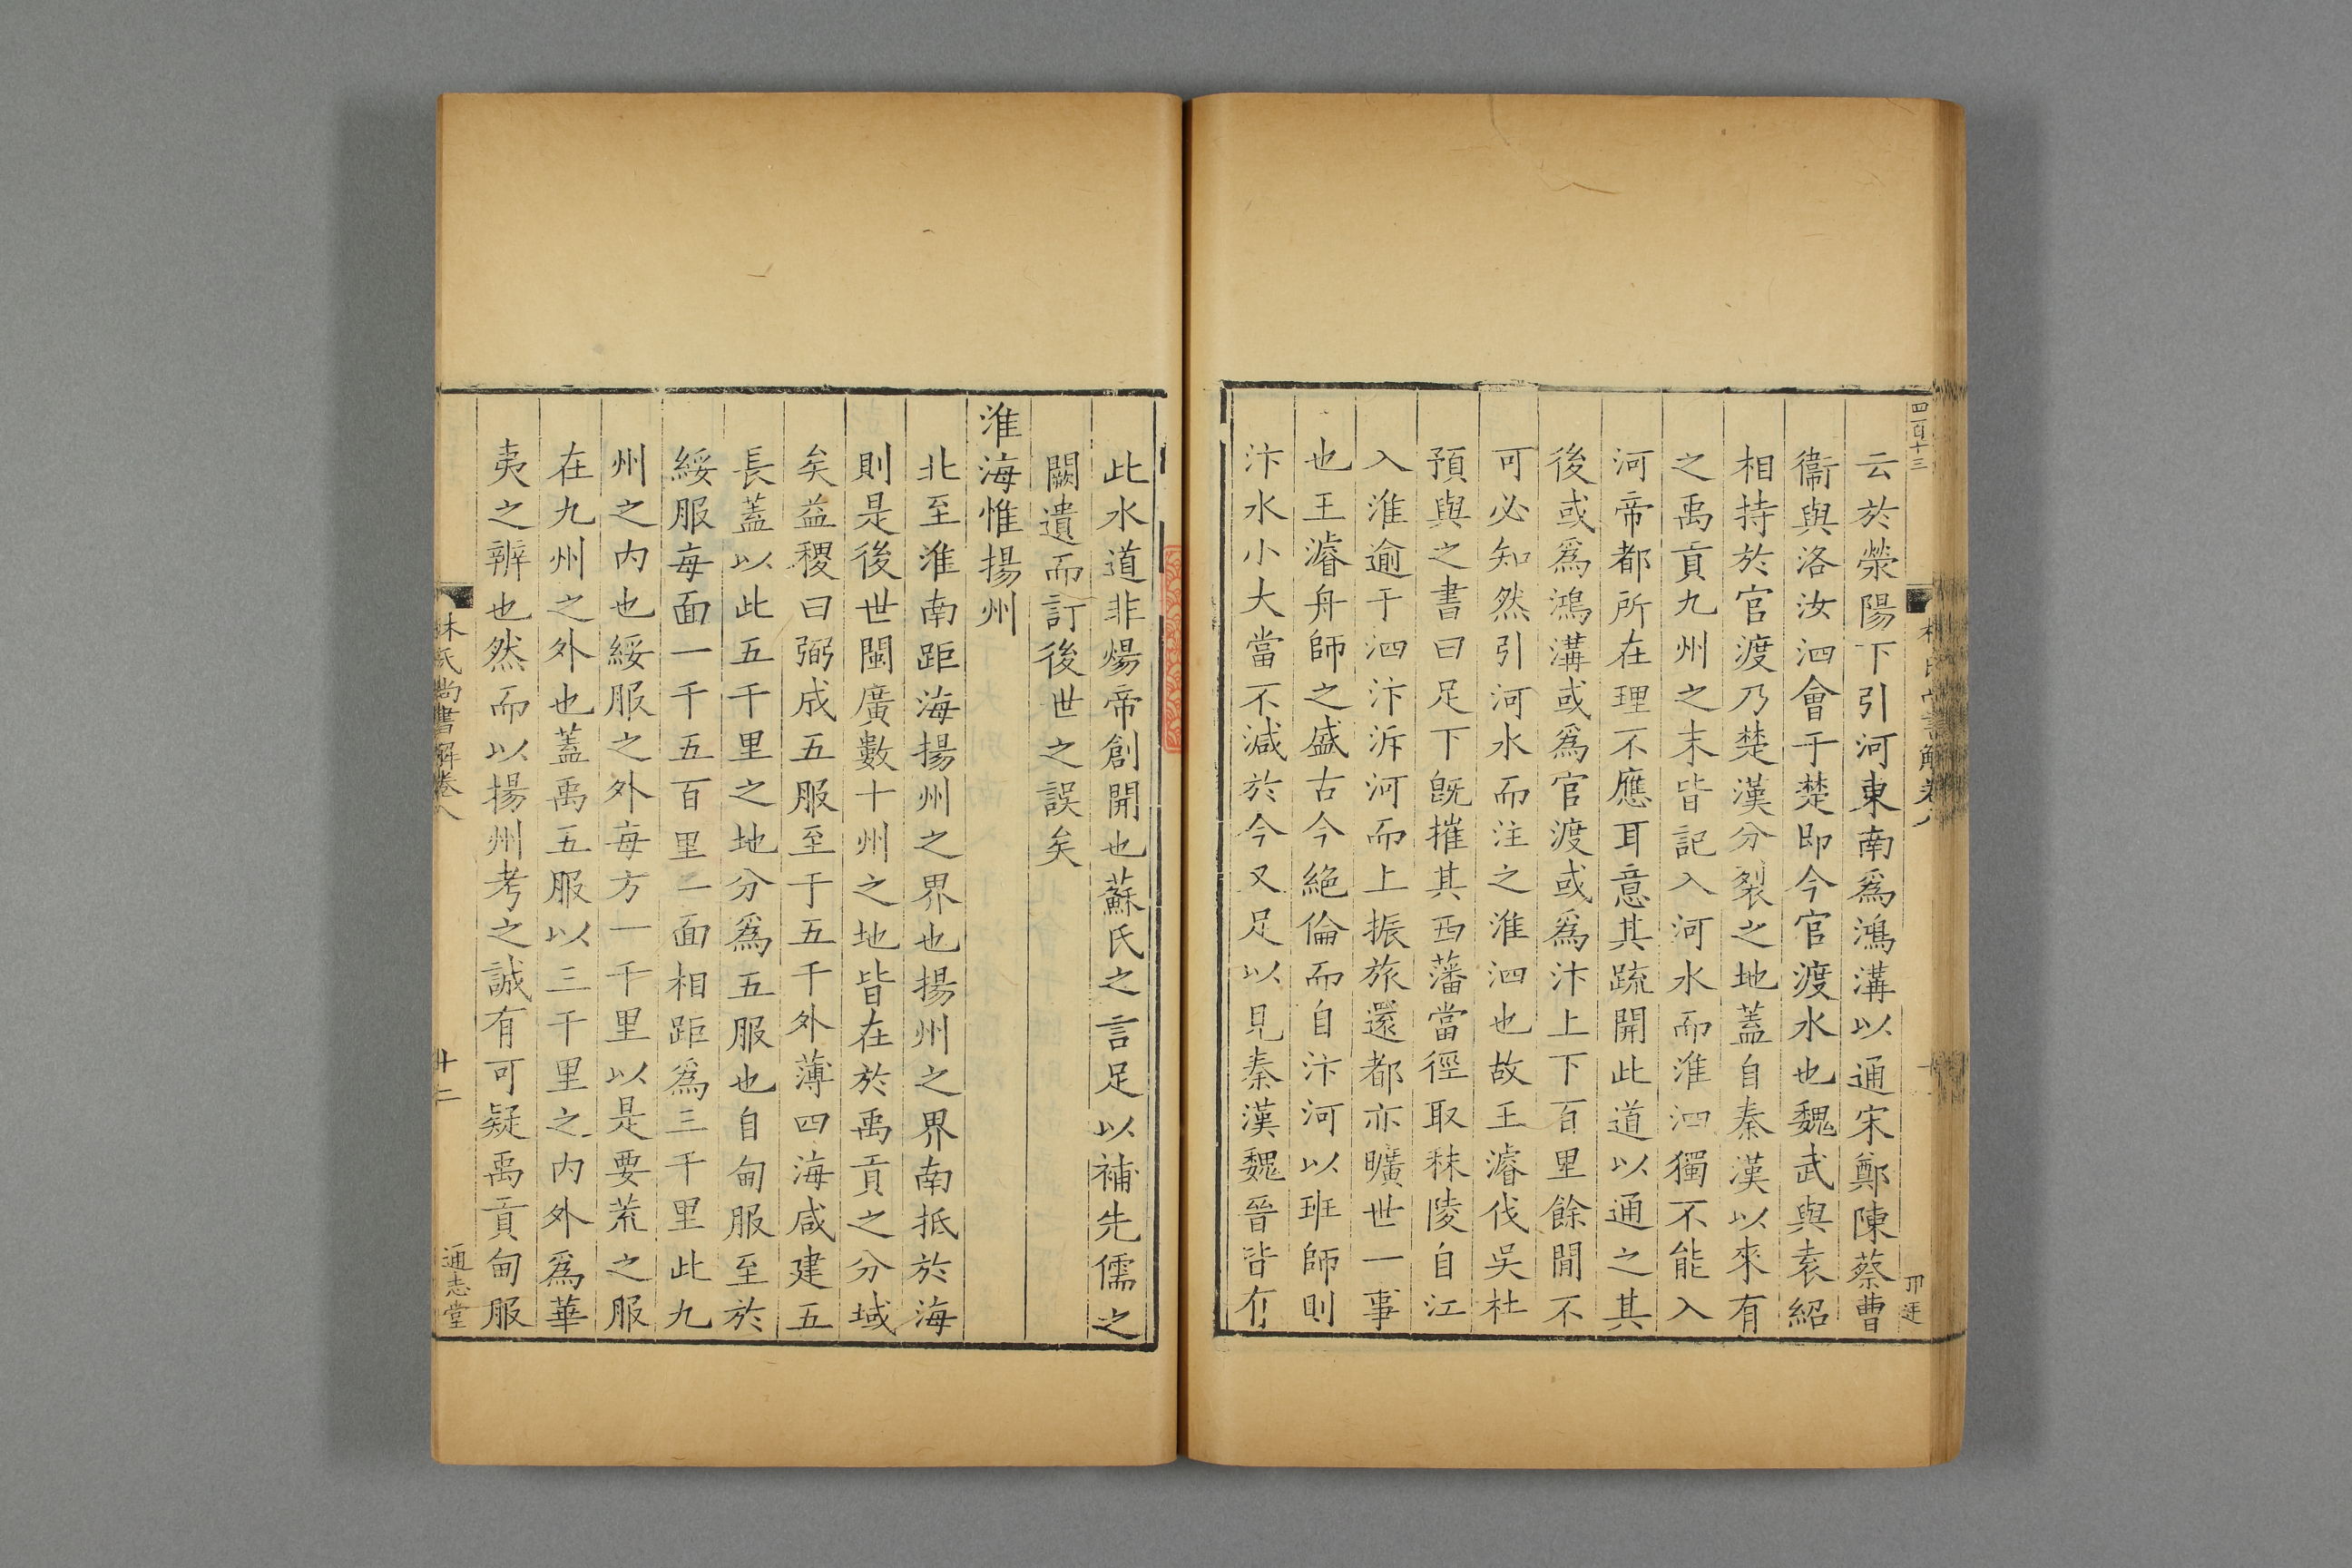 四百十三
云於滎陽下引河東南爲鴻溝以通宋鄭陳蔡曹
衞與洛汝泗會于楚即今官渡水也魏武與袁紹
相持於官渡乃楚漢分裂之地蓋自秦漢以來有
之禹貢九州之末皆記入河水而淮泗獨不能入
河帝都所在理不應耳意其疏開此道以通之其
後或爲鴻溝或爲官渡或爲汴上下百里餘閒不
可必知然引河水而注之淮泗也故王濬伐吳杜
預與之書曰足下旣摧其西藩當徑取秣陵自江
入淮逾于泗汴泝河而上振旅還都亦曠世一事
也王濬舟師之盛古今絕倫而自汴河以班師則
汴水小大當不減於今又足以見秦漢魏晉皆有
此水道非煬帝創開也蘇氏之言足以補先儒之
闕遺而訂後世之誤矣
淮海惟揚州
北至淮南距海揚州之界也揚州之界南抵於海
則是後世閩廣數十州之地皆在於禹貢之分域
矣益稷曰弼成五服至于五千外薄四海咸建五
長蓋以此五千里之地分爲五服也自甸服至於
綏服每面一千五百里二面相距爲三千里此九
州之內也綏服之外每方一千里以是要荒之服
在九州之外也蓋禹五服以三千里之內外爲華
夷之辨也然而以揚州考之誠有可疑禹貢甸服
林氏尚書解卷八
十二
通志堂